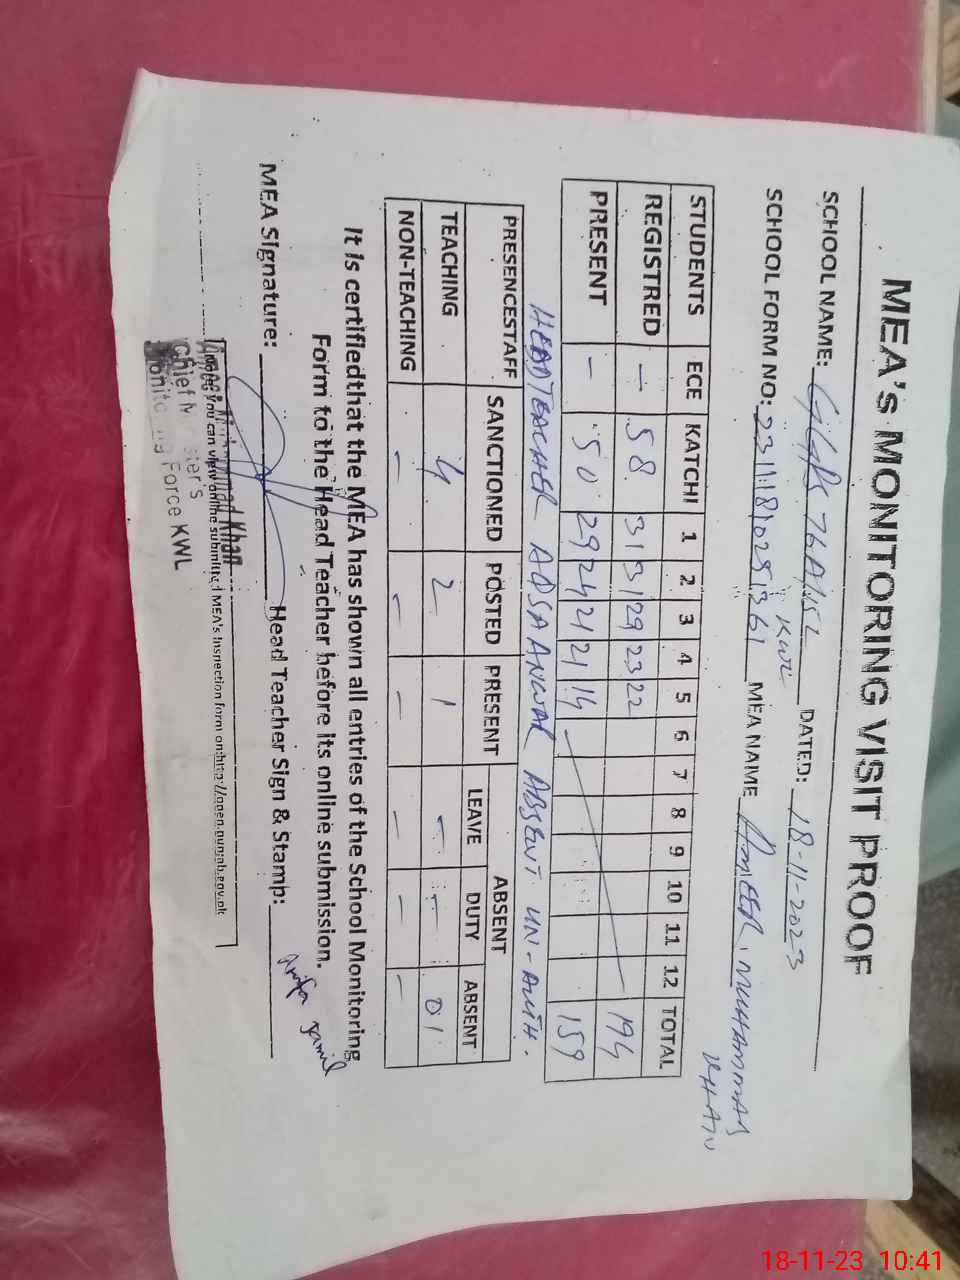 MEA'S MONITORING VISIT PROOF
SCHOOL NAME: GGPS 76A/15L KWL DATED: 18-11-2023
SCHOOL FORM NO: MEA NAME AMEER MUHAMMAD KHAN
STUDENTS ECE KATCHI 1 2 3 4 5 6 7 8 9 10 11 12 TOTAL
REGISTRED — 58 31 31 29 23 22 194
PRESENT — 50 29 24 21 21 14 159
HEADTEACHER ABSENT UN-AUTH.
PRESENCESTAFF SANCTIONED POSTED PRESENT ABSENT
LEAVE DUTY ABSENT
TEACHING 4 2 1 — — 01
NON-TEACHING — — — — — —
It is certifiedthat the MEA has shown all entries of the School Monitoring
Form to the Head Teacher before its online submission.
MEA Signature: Head Teacher Sign & Stamp:
Jamil
Khan
you can view online submitted MEA's Inspection form on:http://open.punjab.gov.pk
Chief Minister's
Monitoring Force KWL
18-11-23 10:41